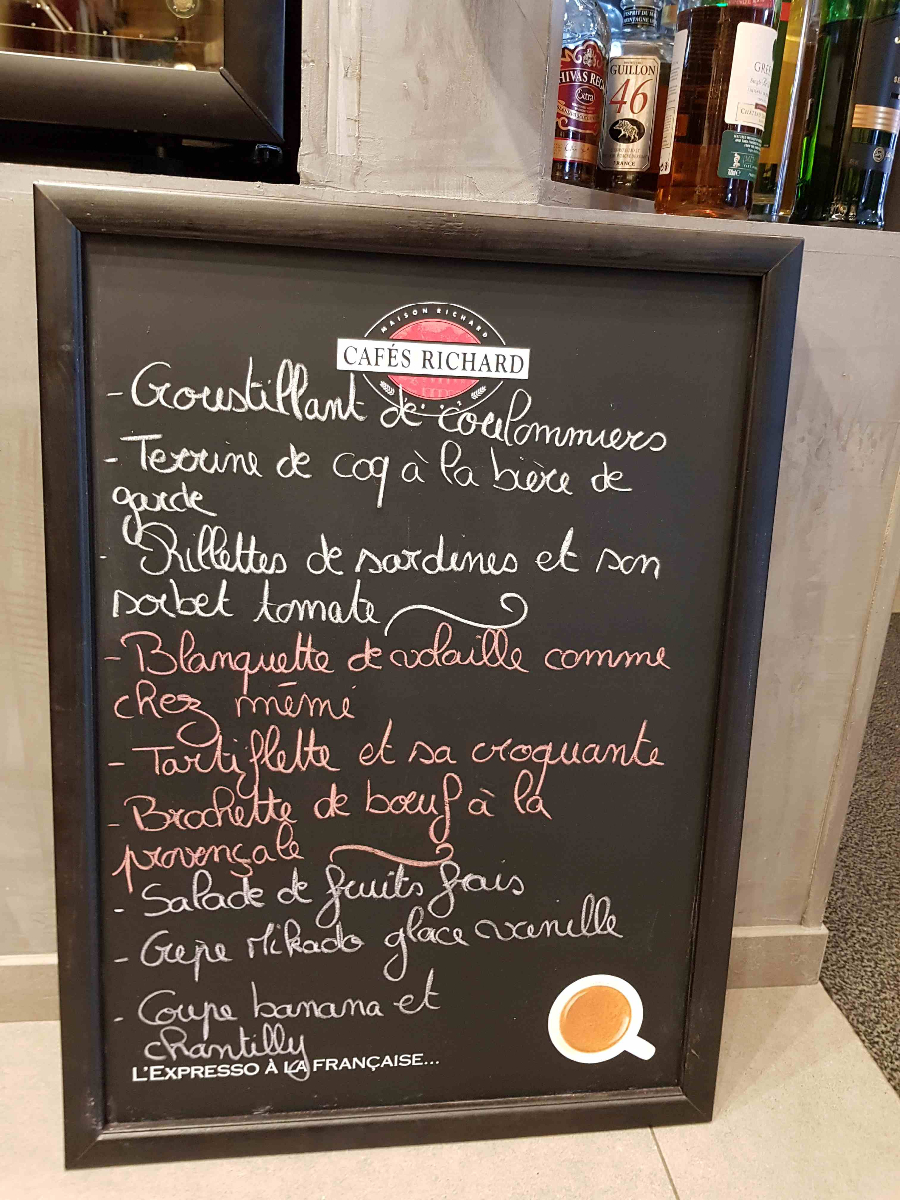 HIVAS REG
Extra
ESPRIT DU
MONTAGNE
GUILLON
46
FRANCE
GRE
MAISON RICHARD
CAFÉS RICHARD
- Croustillant de coulommiers
- Terrine de coq à la bière de
garde
- Rillettes de sardines et son
sorbet tomate
- Blanquette de volaille comme
chez mémé
- Tartiflette et sa croquante
- Brochette de bœuf à la
provençale
- Salade de fruits frais
- Crêpe Mikado glace vanille
- Coupe banana et
chantilly
L'EXPRESSO À LA FRANÇAISE...